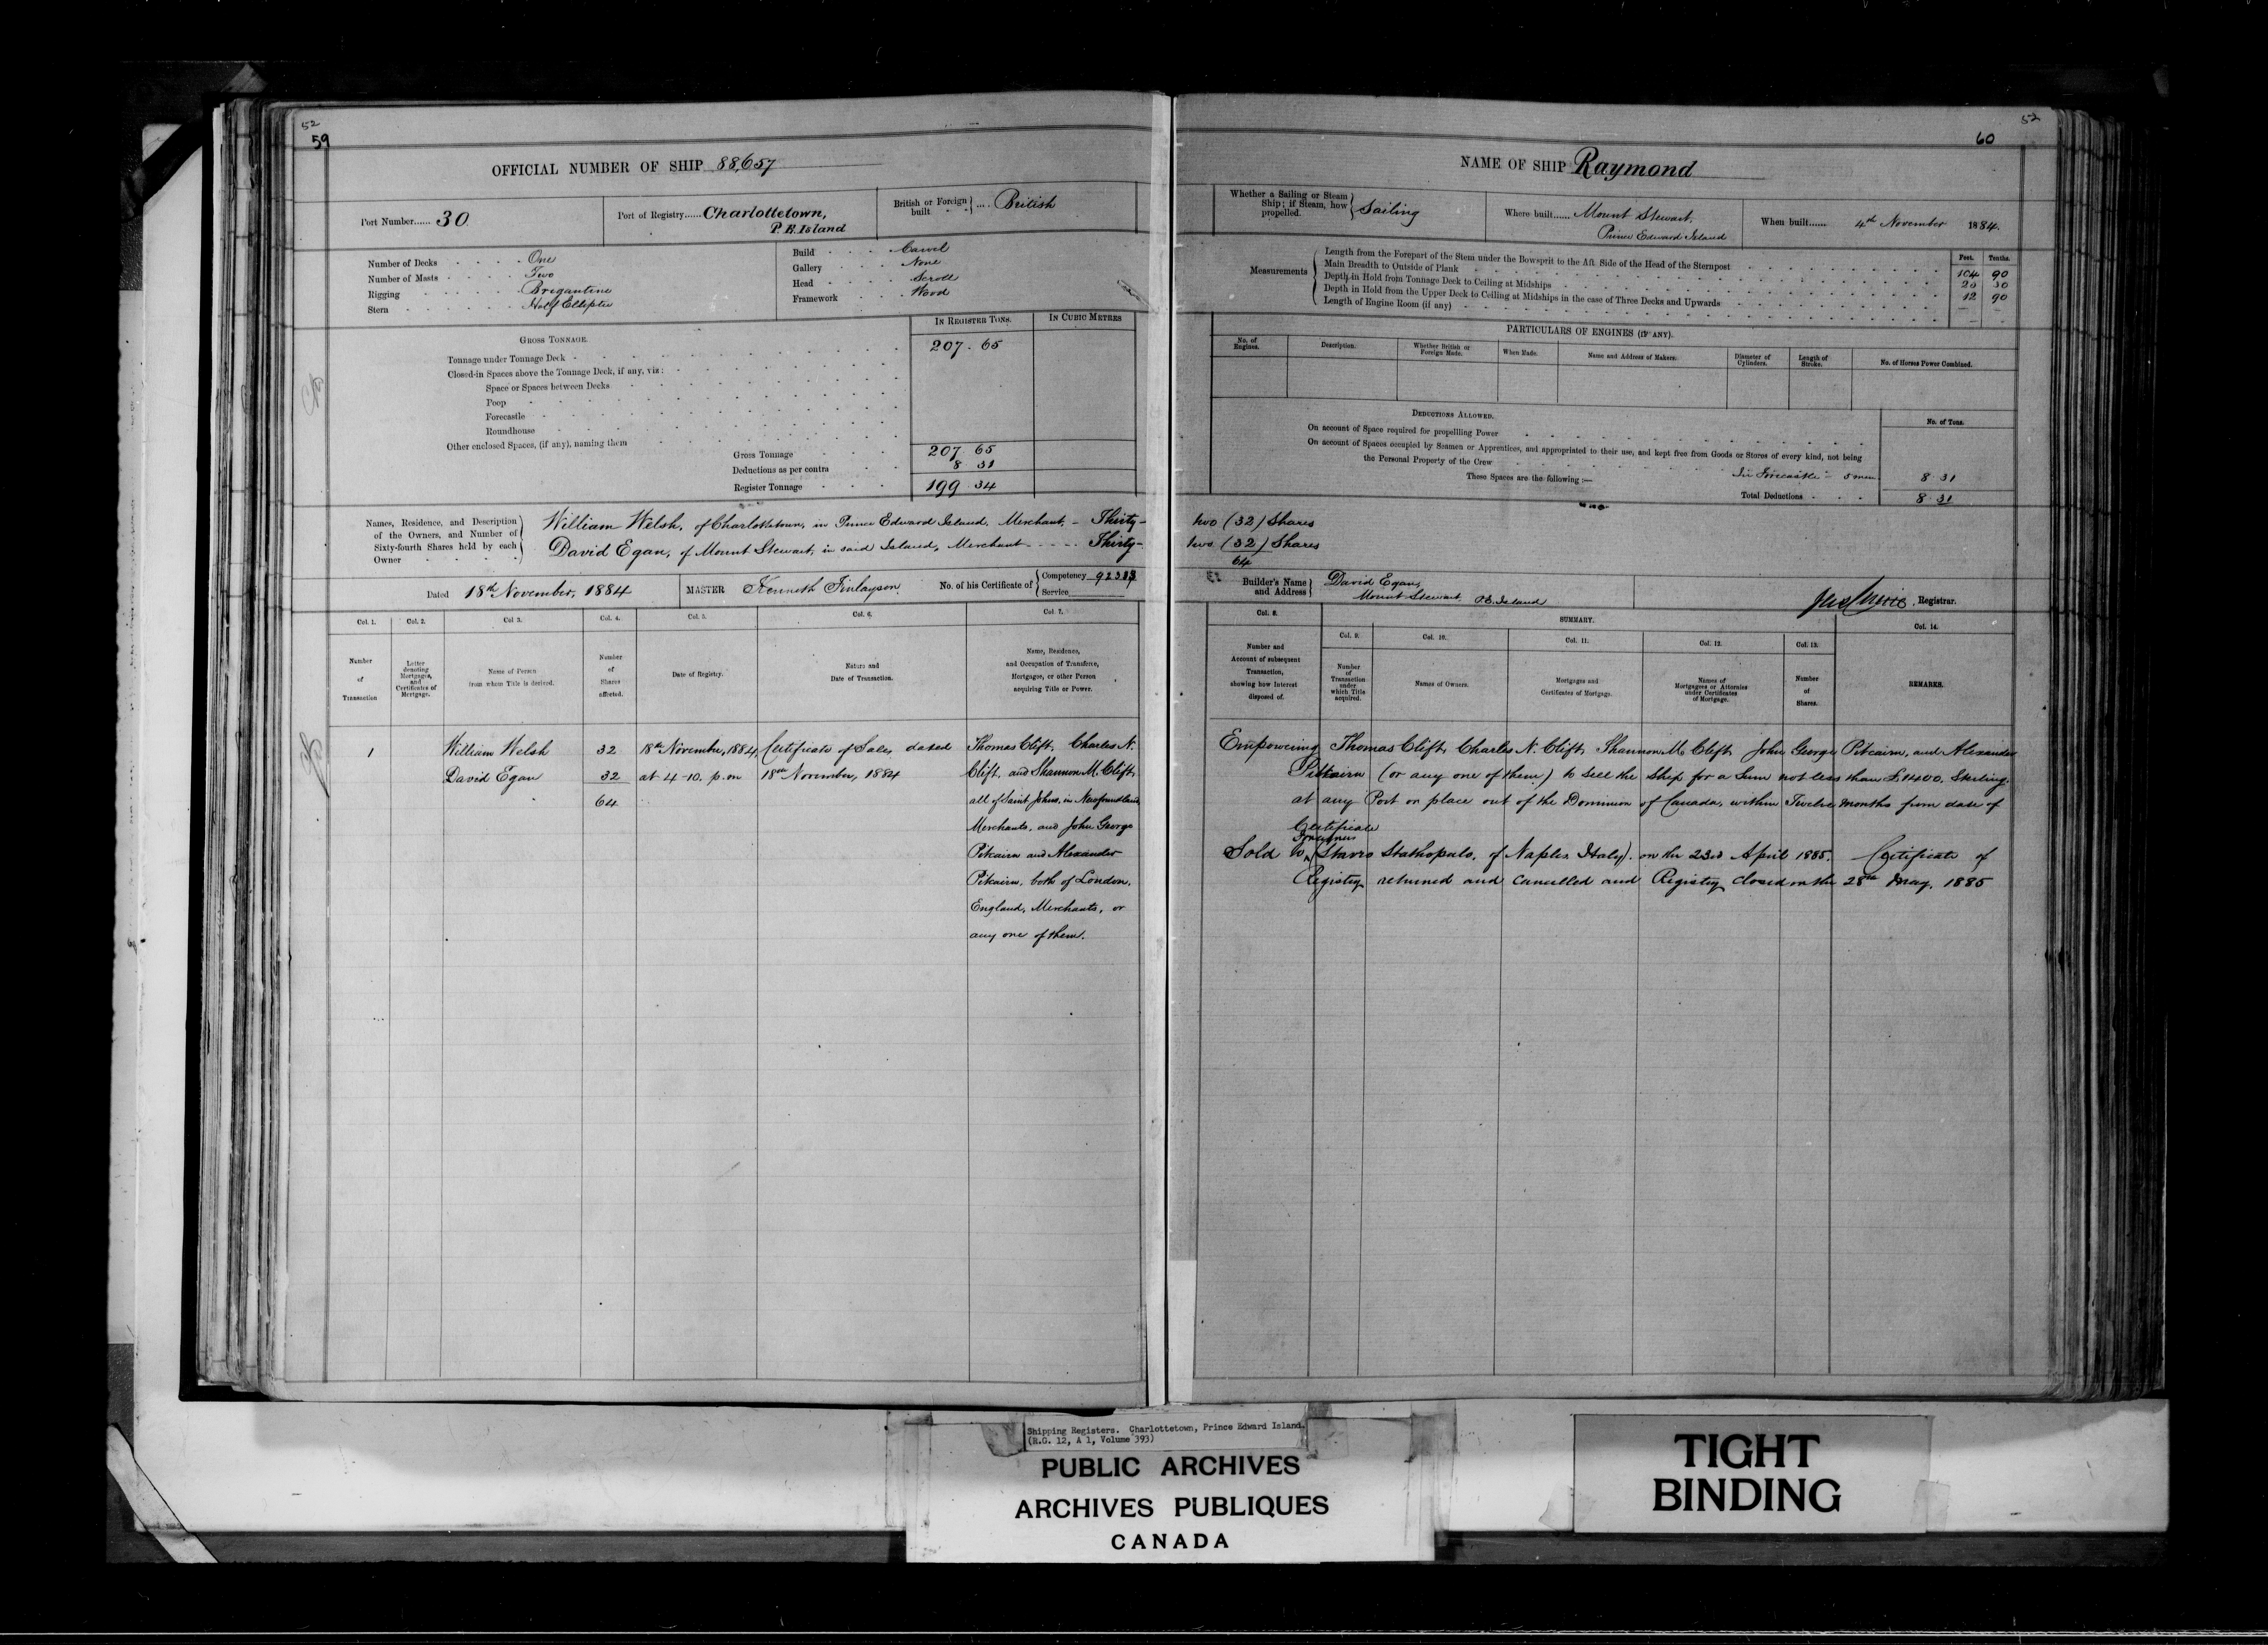 52
59
OFFICIAL NUMBER OF SHIP 88,657
Port Number...... 30
Port of Registry...... Charlottetown,
P. E. Island
British or Foreign built .... British
Number of Decks One
Number of Masts Two
Rigging Brigantine
Stern Half Elliptic
Build Carvel
Gallery None
Head Scroll
Framework Wood
GROSS TONNAGE.
IN REGISTER TONS.
IN CUBIC METRES
Tonnage under Tonnage Deck 207 . 65
Closed-in Spaces above the Tonnage Deck, if any, viz:
Space or Spaces between Decks
Poop
Forecastle
Roundhouse
Other enclosed Spaces, (if any), naming them
Gross Tonnage 207 65
Deductions as per contra 8 31
Register Tonnage 199 34
Names, Residence, and Description of the Owners, and Number of Sixty-fourth Shares held by each Owner
William Welsh, of Charlottetown, in Prince Edward Island, Merchant, - Thirty-
David Egan, of Mount Stewart, in said Island, Merchant - - - - - Thirty-
Dated 18th November, 1884
MASTER Kenneth Finlayson.
No. of his Certificate of
Competency
Service
Col. 1.
Col. 2.
Col. 3.
Col. 4.
Col. 5.
Col. 6.
Col. 7.
Number of Transaction
Letter denoting Mortgages, and Certificates of Mortgage.
Name of Person from whom Title is derived.
Number of Shares affected.
Date of Registry.
Nature and Date of Transaction.
Name, Residence, and Occupation of Transferee, Mortgagee, or other Person acquiring Title or Power.
1 William Welsh 32 18th November, 1884, Certificate of Sale, dated Thomas Clift, Charles N.
David Egan 32 at 4-10. p.m 18th November, 1884 Clift, and Shannon M. Clift,
64 all of Saint Johns, in Newfoundland,
Merchants, and John George
Pitcairn and Alexander
Pitcairn, both of London,
England, Merchants, or
any one of them.
52
60
NAME OF SHIP Raymond
Whether a Sailing or Steam Ship; if Steam, how propelled. Sailing
Where built...... Mount Stewart,
Prince Edward Island
When built...... 4th November 1884.
Measurements
Feet. Tenths.
Length from the Forepart of the Stem under the Bowsprit to the Aft Side of the Head of the Sternpost 104 90
Main Breadth to Outside of Plank
Depth in Hold from Tonnage Deck to Ceiling at Midships 12 90
Depth in Hold from the Upper Deck to Ceiling at Midships in the case of Three Decks and Upwards
Length of Engine Room (if any)
PARTICULARS OF ENGINES (IF ANY).
No. of Engines.
Description.
Whether British or Foreign Made.
When Made.
Name and Address of Makers.
Diameter of Cylinders.
Length of Stroke.
No. of Horses Power Combined.
DEDUCTIONS ALLOWED.
No. of Tons.
On account of Space required for propelling Power
On account of Spaces occupied by Seamen or Apprentices, and appropriated to their use, and kept free from Goods or Stores of every kind, not being
the Personal Property of the Crew
These Spaces are the following :— In Forecastle - 5 men 8 31
Total Deductions 8 31
two (32) Shares
two (32) Shares
64
Builder's Name and Address
David Egan,
Mount Stewart, P.E. Island
Registrar.
Col. 8.
SUMMARY.
Col. 9.
Col. 10.
Col. 11.
Col. 12.
Col. 13.
Col. 14.
Number and Account of subsequent Transaction, showing how Interest disposed of.
Number of Transaction under which Title acquired.
Names of Owners.
Mortgages and Certificates of Mortgage.
Names of Mortgagees or Attornies under Certificates of Mortgage.
Number of Shares.
REMARKS.
Empowering Thomas Clift, Charles N. Clift, Shannon M. Clift, John George Pitcairn, and Alexander
Pitcairn (or any one of them) to sell the Ship for a Sum not less than £1400, Sterling
at any Port or place out of the Dominion of Canada, within Twelve Months from date of
Certificate
Foreigners
Sold to Stavro Stathopulo, of Naples Italy). on the 23rd April 1885. Certificate of
Registry returned and Cancelled and Registry closed on the 28th May, 1885
Shipping Registers. Charlottetown, Prince Edward Island.
(R.G. 12, A 1, Volume 393)
PUBLIC ARCHIVES
ARCHIVES PUBLIQUES
CANADA
TIGHT
BINDING